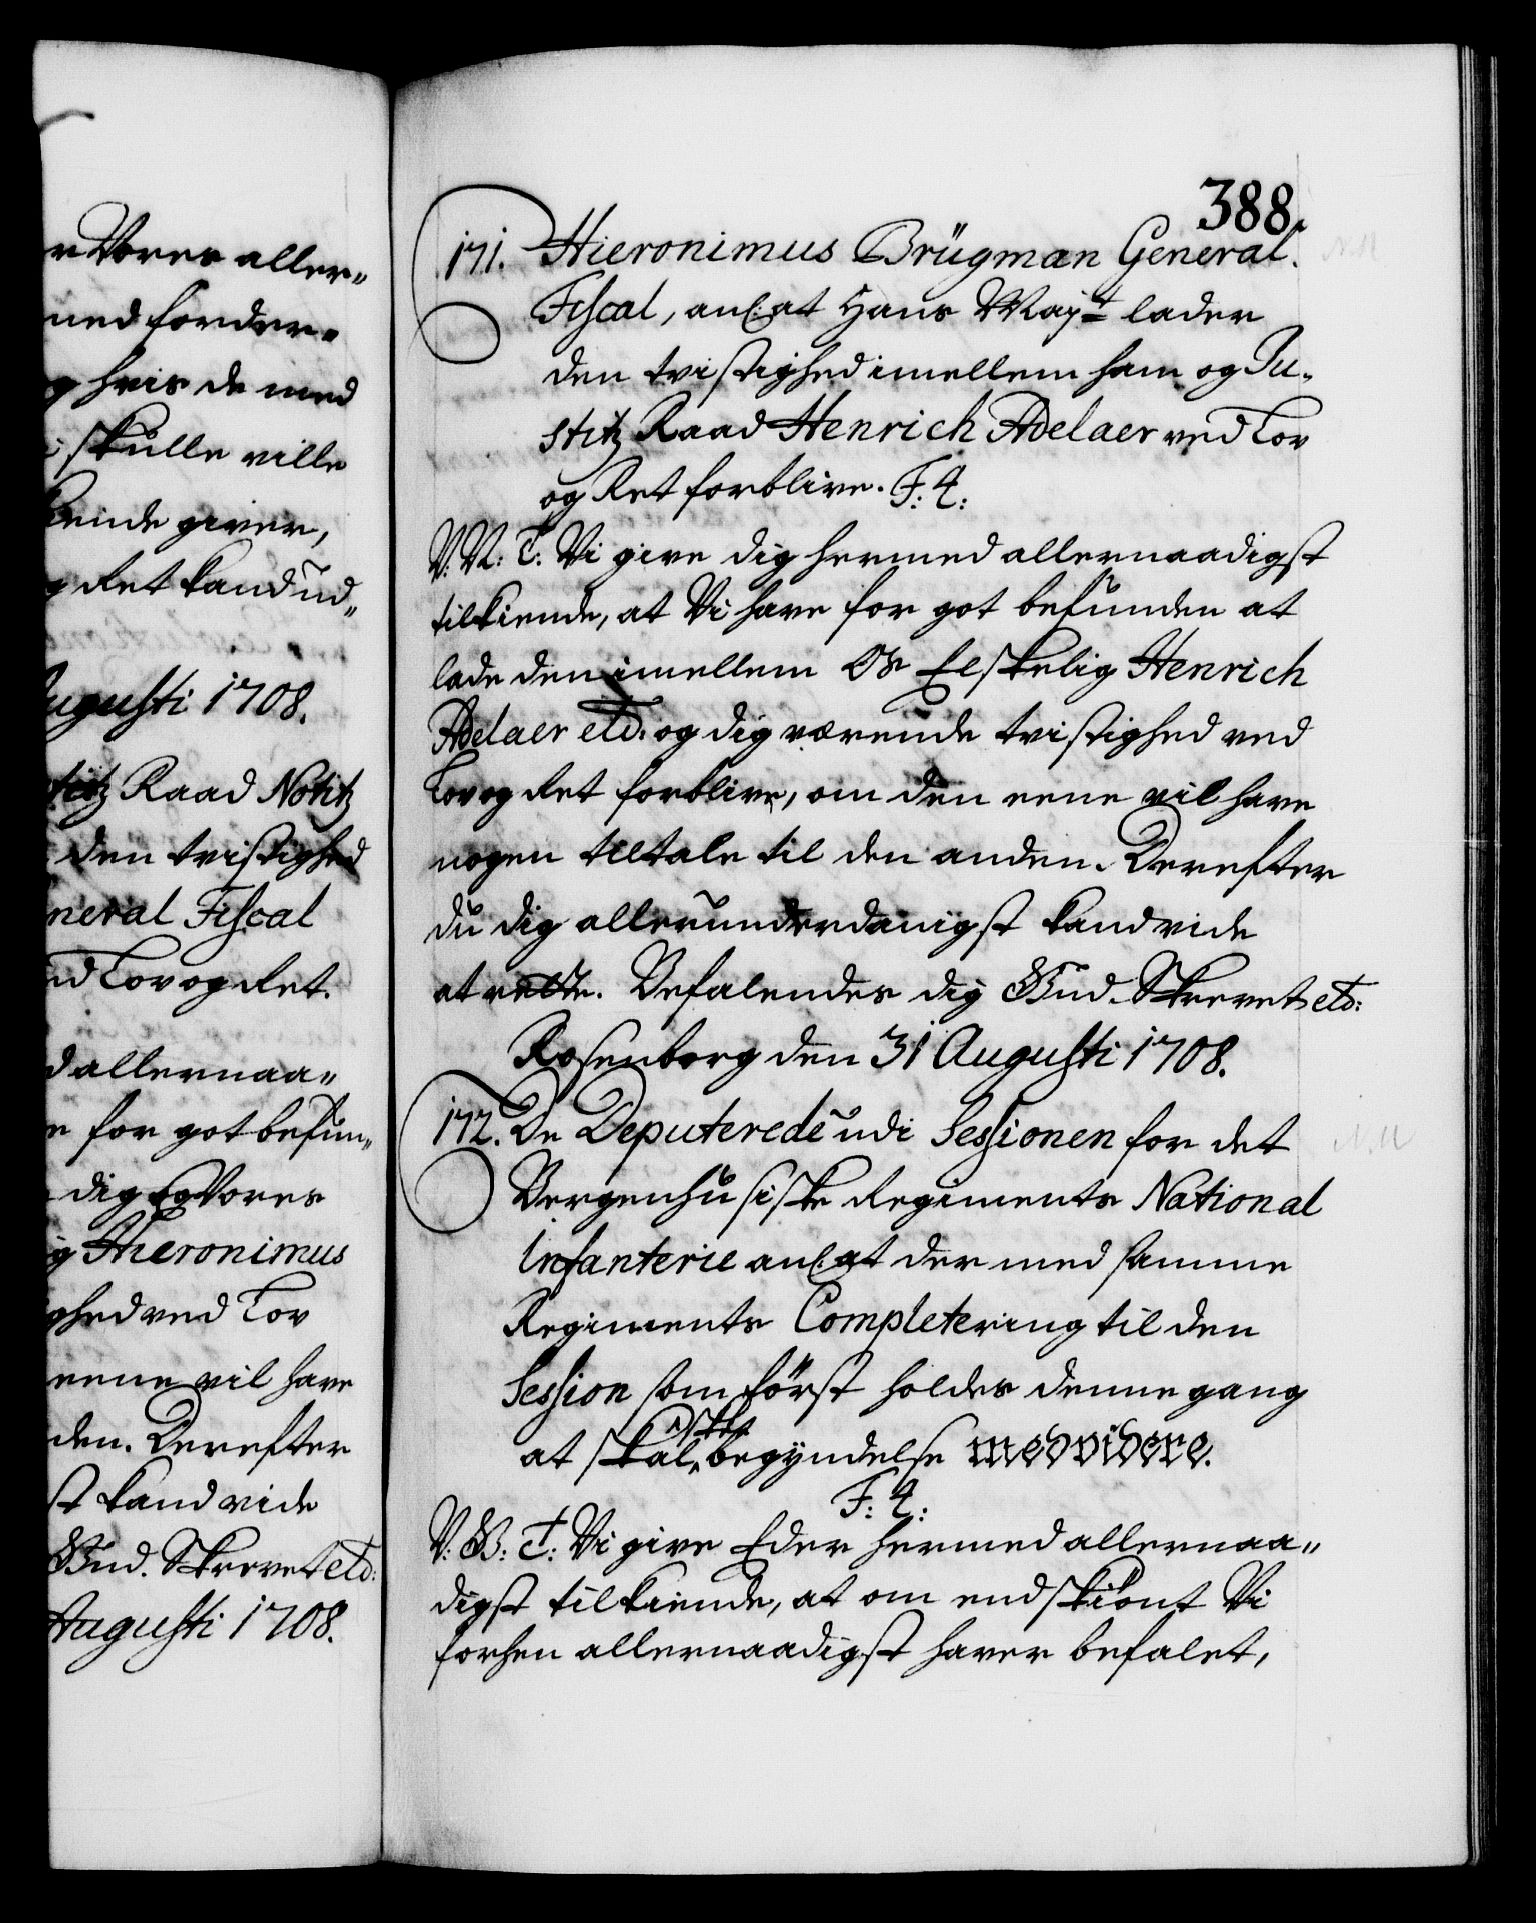 r Vores aller„
med forder„
g hvis de med
skulle ville
kiende giver,
g Ret kand ud„
Augusti 1708.
stitz Raad Notitz
den tvistighed
neral Fiscal
ed Lov og Ret.
d allernaa„
e for got befun„
dig og Vores
g Hieronimus
ghed ved Lov
eene vil have
den. Derefter
st kand vide
Gud. Skrevet etc:
Augusti 1708.
388.
171. Hieronimus Brügman General.
Fiscal, anl: at Hans Mayt lader
den tvistighed imellem ham og Ju„
stitz Raad Henrich Adelaer ved Lov
og Ret forblive. F: 4:
V: N: T: Vi give dig hermed allernaadigst
tilkiende, at Vi have for got befunden at
lade den imellem Os Elskelig Henrich
Adelaer etc. og dig værende tvistighed ved
Lov og Ret forblive, om den eene vil have
nogen tiltale til den anden. Derefter
du dig allerunderdanigst kand vide
at rette. Befalendes dig Gud. Skrevet etc:
Rosenborg den 31 Augusti 1708.
172. De Deputerede udi Sessionen for det
Bergenhusiske Regiments National
Infanterie anl: at der med samme
Regiments Completering til den
Session som först holdes denne gang
at skal, begyndelse med videre.
F: 4:
V: G: T: Vi give Eder hermed allernaa„
digst tilkiende, at om endskiönt Vi
forhen allernaadigst haver befalet,